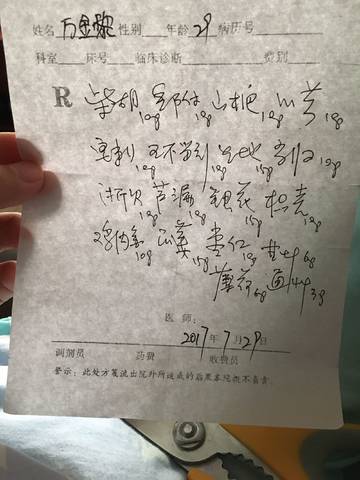 姓名 万金 性别 年龄 29 病历号
科室 床号 临床诊断 费别
R 柴胡 10g 10g 山栀 10g 川芎 10g
10g 王不留行 10g 生地 15g 当归 10g
浙贝 10g 10g 银花 15g 枳壳 10g
鸡内金 10g 瓜蒌 15g 枣仁 10g 甘草 6g
薄荷 6g 通草 3g
医师:
2017年7月29日
调剂员 药费 收费员
警示：此处方笺流出院外所造成的后果本院概不负责。